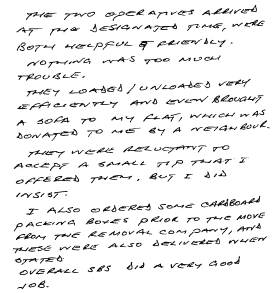 THE TWO OPERATIVES ARRIVED
AT THE DESIGNATED TIME, WERE
BOTH HELPFUL & FRIENDLY.
NOTHING WAS TOO MUCH
TROUBLE.
THEY LOADED/UNLOADED VERY
EFFICIENTLY AND EVEN BROUGHT
A SOFA TO MY FLAT, WHICH WAS
DONATED TO ME BY A NEIGHBOUR.
THEY WERE RELUCTANT TO
ACCEPT A SMALL TIP THAT I
OFFERED THEM, BUT I DID
INSIST.
I ALSO ORDERED SOME CARDBOARD
PACKING BOXES PRIOR TO THE MOVE
FROM THE REMOVAL COMPANY, AND
THESE WERE ALSO DELIVERED WHEN
STATED.
OVERALL SBS DID A VERY GOOD
JOB.